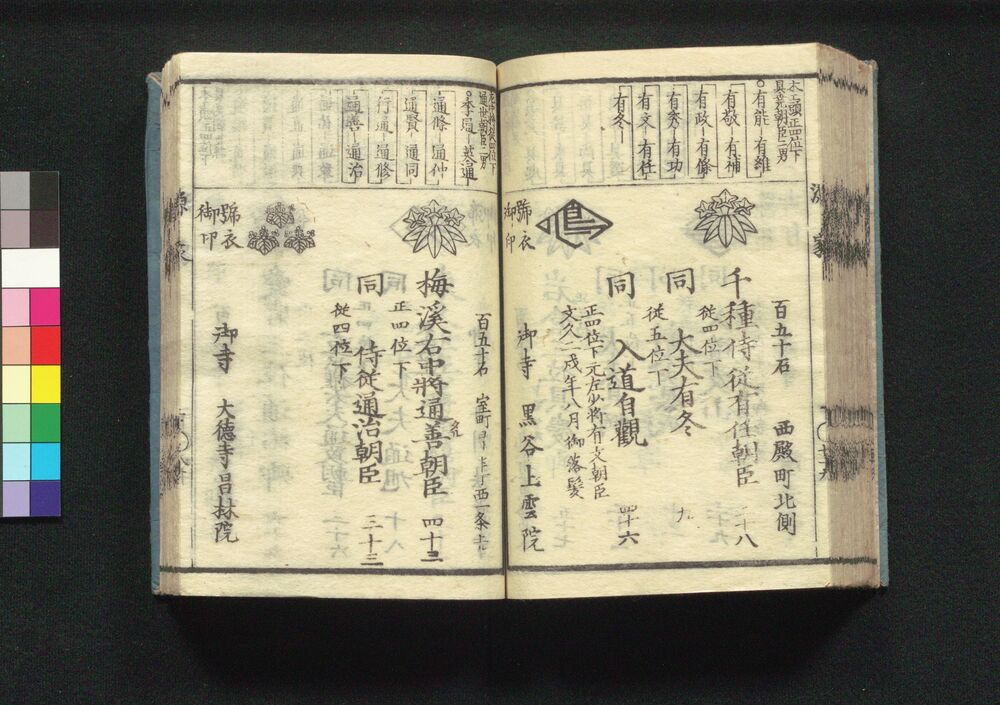 木工頭正四位下
具堯朝臣二男
有能 有維
有敬 有補
有政 有條
有秀 有功
有文 有任
有冬
源家
百五十石 西殿町北側
千種侍従有任朝臣 二十八
従四位下
同 大夫有冬 九
従五位下
同 入道自觀 四十六
正四位下元左少將有文朝臣
文久二戌年八月御落髪
御寺 黒谷上雲院
號衣
御印
通世朝臣二男
季通 英通
通條 通仲
通賢 通同
行通 通修
通善 通治
源家
百五十石 室町
梅溪右中將通善朝臣 四十三
正四位下
同 侍従通治朝臣 三十三
従四位下
御寺 大德寺昌林院
號衣
御印